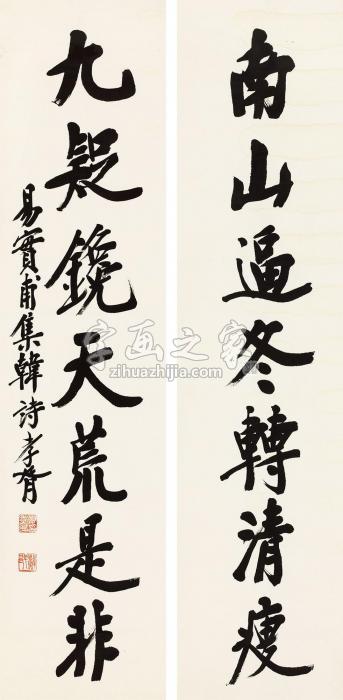 南山逼冬轉清瘦
九疑鑱天荒是非
易實甫集韓詩孝胥
字画之家
zihuazhijia.com